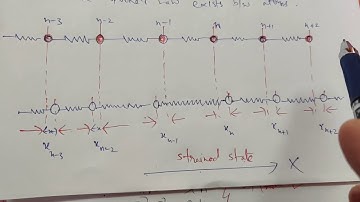 law exists b/w atoms.
n-3 n-2 n-1 n n+1 n+2
x n-3 x n-2 x n-1 x n x n+1 x n+2
strained state
X